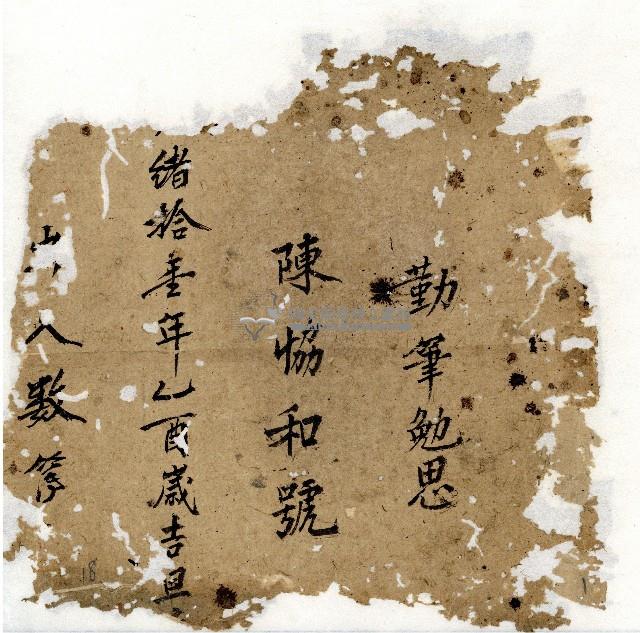 勤筆勉思
陳恊和號
緒拾壹年乙酉歲吉旦
入數
18